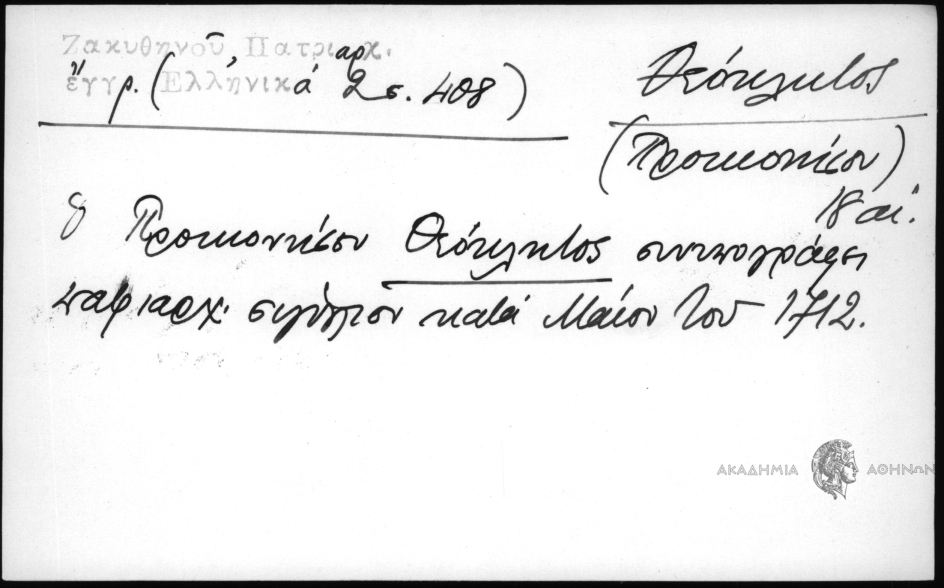 Ζακυθηνοῦ, Πατριαρχ.
ἔγγρ. (Ἑλληνικά 2 σ. 408)
Θεόκλητος
(Προικονήσου)
18 αἰ.
ὁ Προικονήσου Θεόκλητος συνυπογράφει
πατριαρχ. σιγίλλιον κατὰ Μάϊον τοῦ 1712.
ΑΚΑΔΗΜΙΑ ΑΘΗΝΩΝ